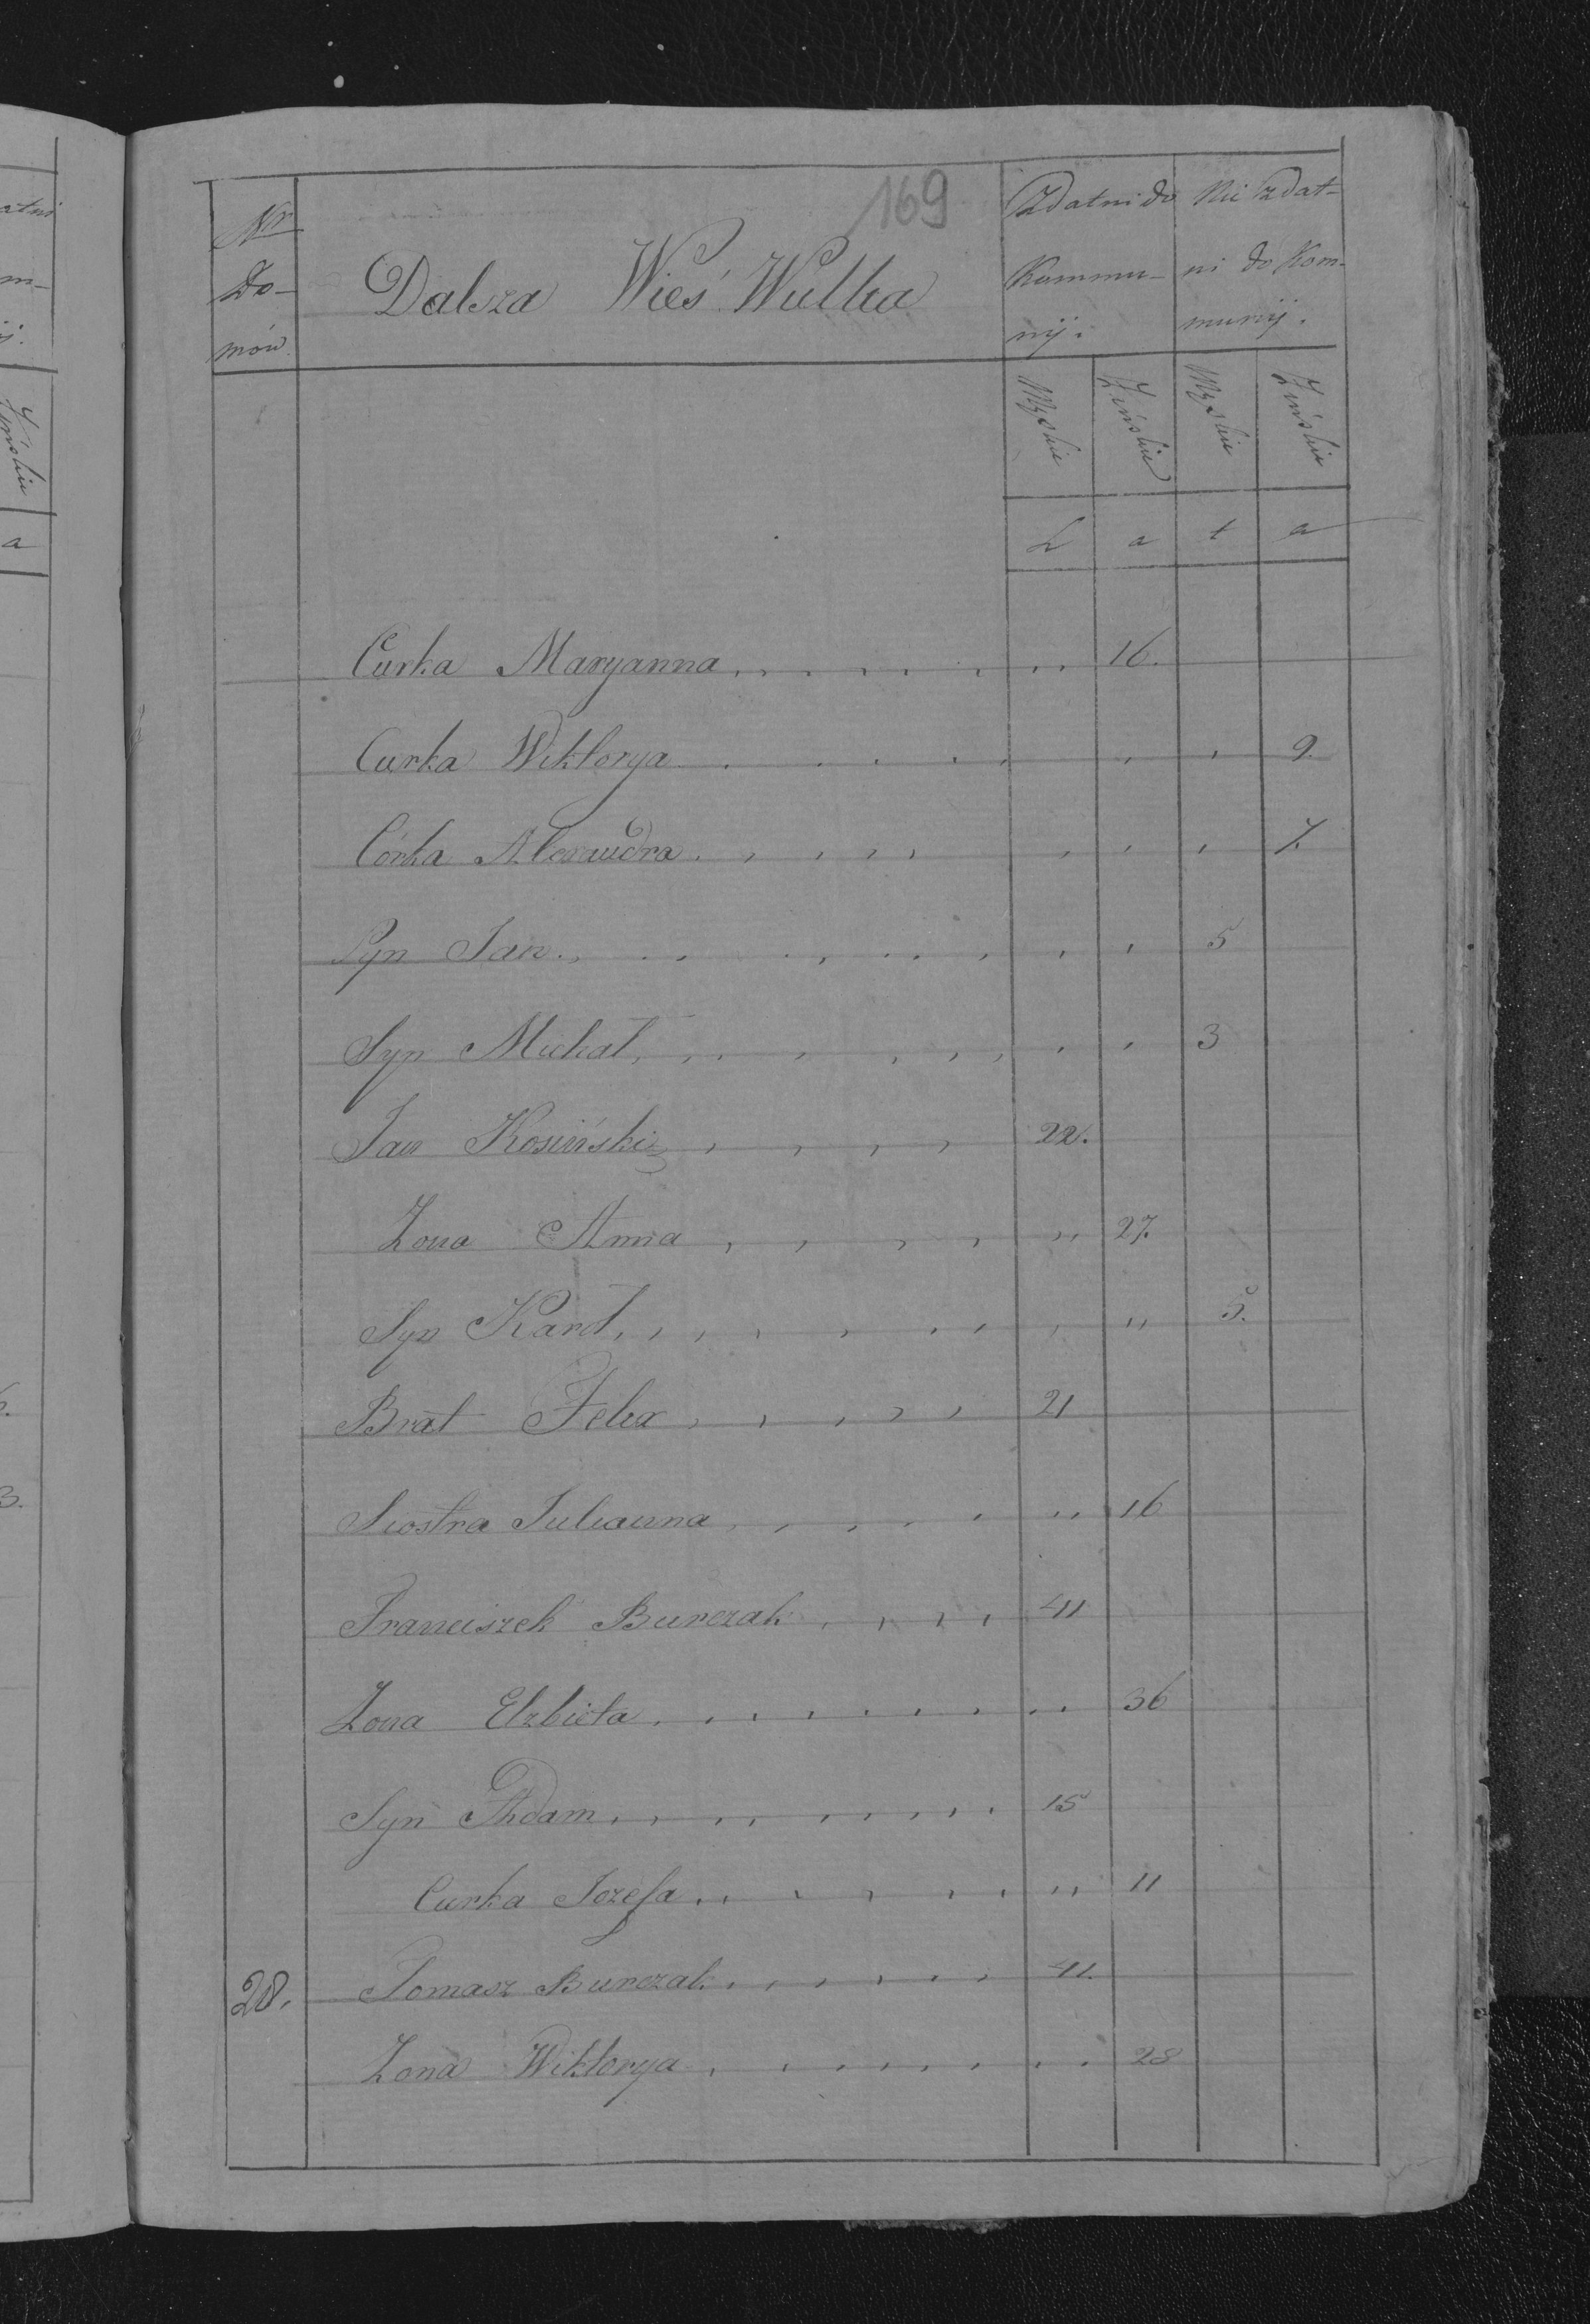 169
Nr
Do-
mów
Dalsza Wieś Wulka
Zdatni do
Kommu-
nij.
Nie zdat-
ni do Kom-
munij.
Męskie
Żeńskie
Męskie
Żeńskie
L a t a
Curka Maryanna 16.
Curka Wiktorya 9.
Córka Alexandra 7.
Syn Jan 5
Syn Michał 3
Jan Kosiński 22.
Zona Anna 27.
Syn Karol 5.
Brat Felix 21
Siostra Julianna 16
Franciszek Burczak 41
Zona Elzbieta 36
Syn Adam 15
Curka Jozefa 11
28. Tomasz Burczak 41.
Zona Wiktorya 28